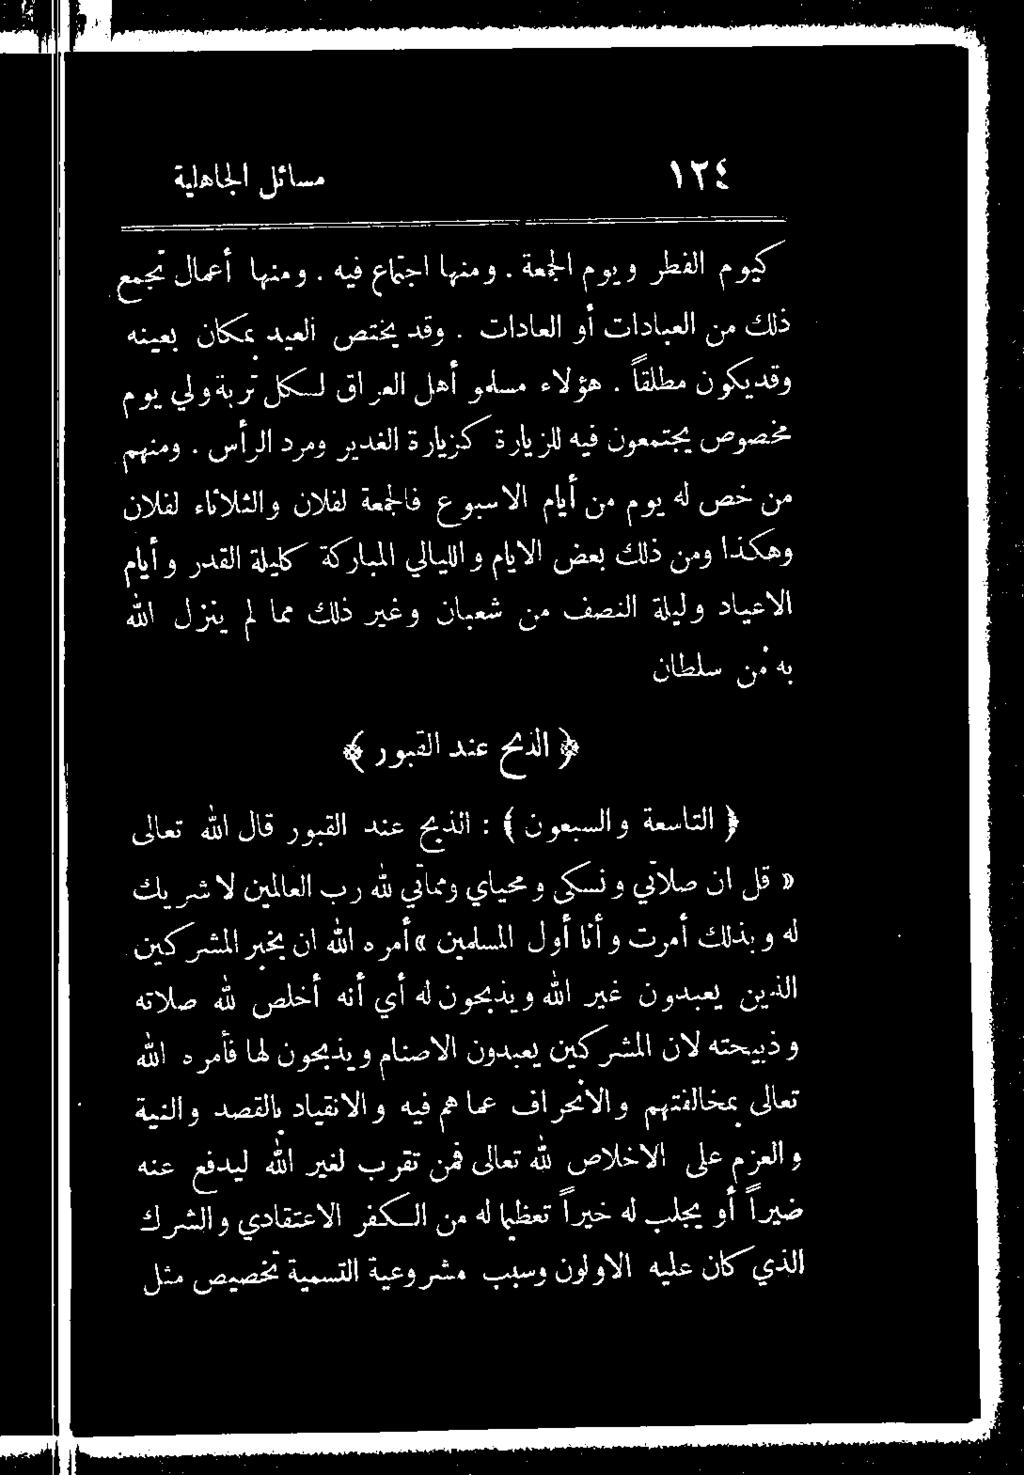 ١٢٤ مسائل الجاهلية
كيوم الفطر ويوم الجمعة . ومنها اجتماع فيه . ومنها أعمال تجمع
ذلك من العبادات أو العادات . وقد يختص العيد بمكان بعينه
وقديكون مطلقاً . هؤلاء مسلمو أهل العراق لـكل تربة ولي يوم
مخصوص يجتمعون فيه للزيارة كزيارة الغدير ومرد الرأس . ومنهم
من خص له يوم من أيام الاسبوع فالجمعة لفلان والثلاثاء لفلان
وهكذا ومن ذلك بعض الايام والليالي المباركة كليلة القدر وأيام
الاعياد وليلة النصف من شعبان وغير ذلك مما لم ينزل الله
به من سلطان
﴿ الذبح عند القبور ﴾
﴿ التاسعة والسبعون ﴾ : الذبح عند القبور قال الله تعالى
« قل ان صلاتي ونسكي ومحياي ومماتي لله رب العالمين لا شريك
له وبذلك أمرت وأنا أول المسلمين » أمره الله ان يخبر المشركين
الذين يعبدون غير الله ويذبحون له أي أنه أخلص لله صلاته
وذبيحته لان المشركين يعبدون الاصنام ويذبحون لها فأمره الله
تعالى بمخالفتهم والانحراف عما هم فيه والانقياد بالقصد والنية
والعزم على الاخلاص لله تعالى فمن تقرب لغير الله ليدفع عنه
ضيراً أو يجلب له خيراً تعظيما له من الـكفر الاعتقادي والشرك
الذي كان عليه الاولون وسبب مشروعية التسمية تخصيص مثل